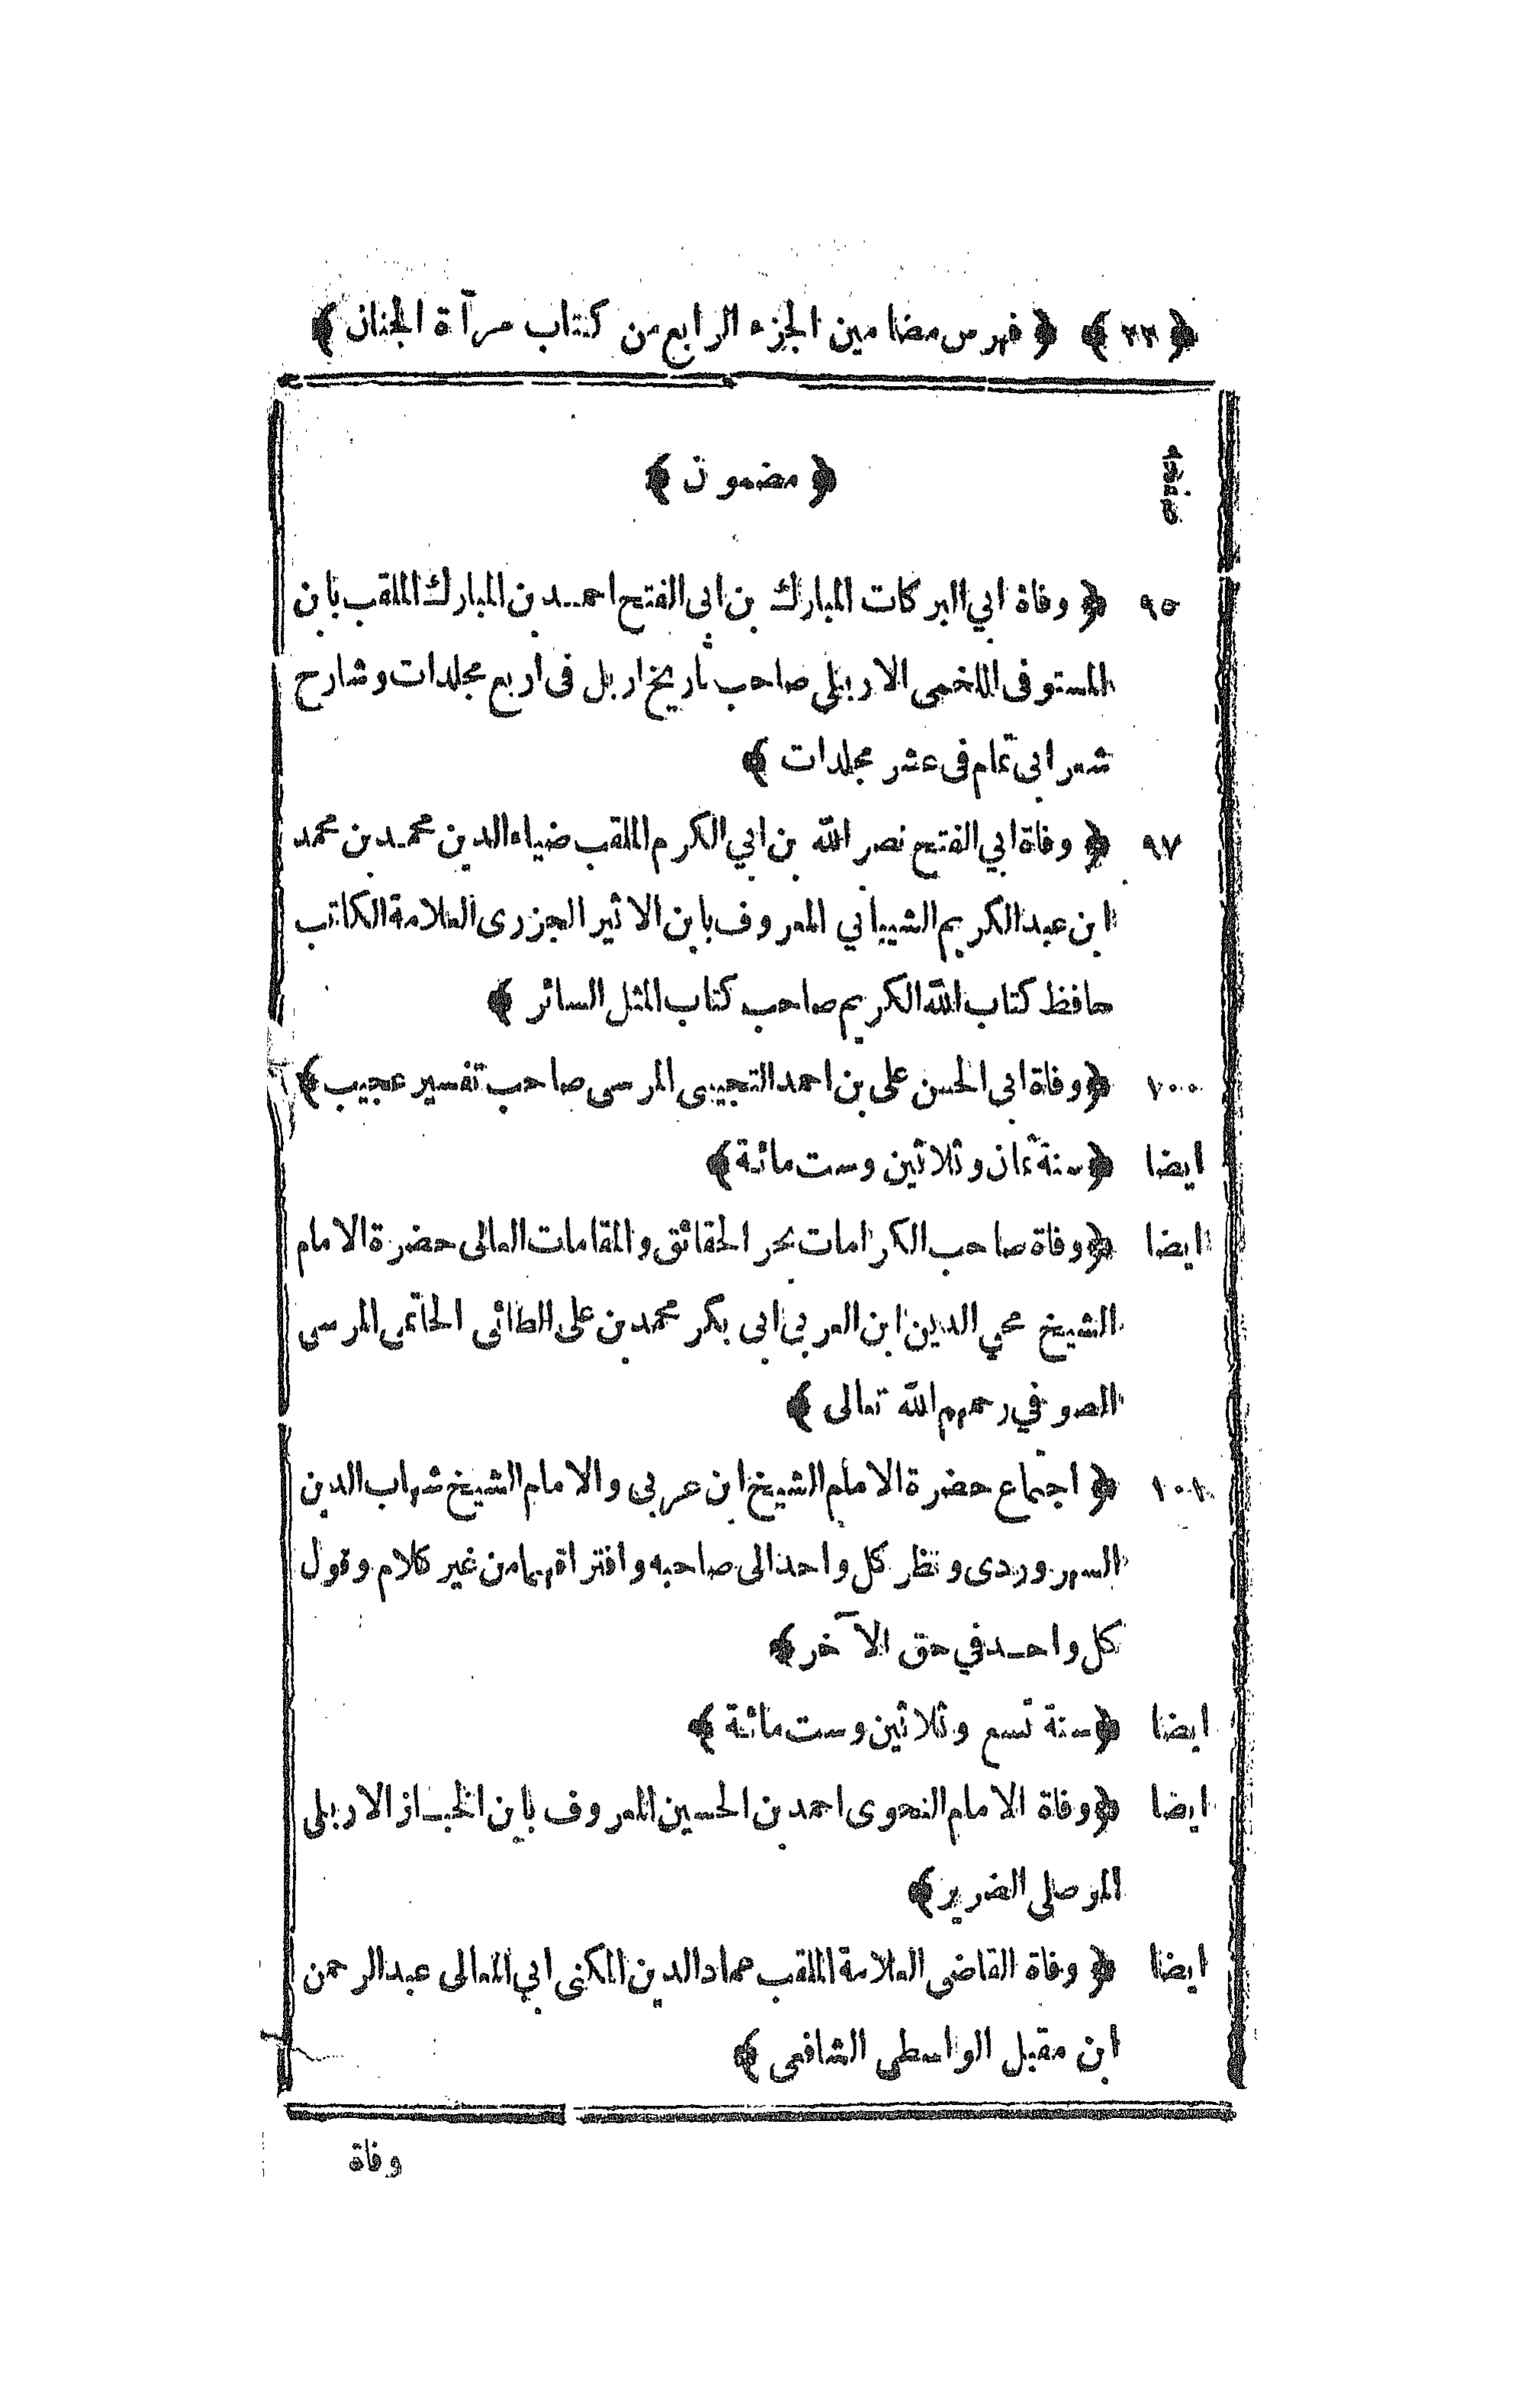 ﴿ ٢٢ ﴾ ﴿ فهرس مضامين الجزء الرابع من كتاب مرآة الجنان ﴾
صفحه ﴿ مضمون ﴾
٩٥ ﴿ وفاة ابي البركات المبارك بن ابى الفتح احمد بن المبارك الملقب بابن
المستوفى اللخمى الاربلى صاحب تاريخ اربل فى اربع مجلدات وشارح
شعر ابى تمام فى عشر مجلدات ﴾
٩٧ ﴿ وفاة ابي الفتح نصر الله بن ابي الكرم الملقب ضياء الدين محمد بن محمد
ابن عبد الكريم الشيباني المعروف بابن الاثير الجزرى العلامة الكاتب
حافظ كتاب الله الكريم صاحب كتاب المثل السائر ﴾
١٠٠ ﴿ وفاة ابي الحسن على بن احمد التجيبى المرسى صاحب تفسير عجيب ﴾
ايضا ﴿ سنة ثمان وثلاثين وست مائة ﴾
ايضا ﴿ وفاة صاحب الكرامات بحر الحقائق والمقامات العالى حضرة الامام
الشيخ محي الدين ابن العربى ابى بكر محمد بن على الطائى الحاتمى المرسى
الصوفي رحمهم الله تعالى ﴾
١٠١ ﴿ اجتماع حضرة الامام الشيخ ابن عربى والامام الشيخ شهاب الدين
السهروردى ونظر كل واحد الى صاحبه وافتراقهما من غير كلام وقول
كل واحد في حق الآخر ﴾
ايضا ﴿ سنة تسع وثلاثين وست مائة ﴾
ايضا ﴿ وفاة الامام النحوى احمد بن الحسين المعروف بابن الخباز الاربلى
الموصلى الضرير ﴾
ايضا ﴿ وفاة القاضى العلامة الملقب عماد الدين المكنى ابي المعالى عبد الرحمن
ابن مقبل الواسطى الشافعى ﴾
وفاة